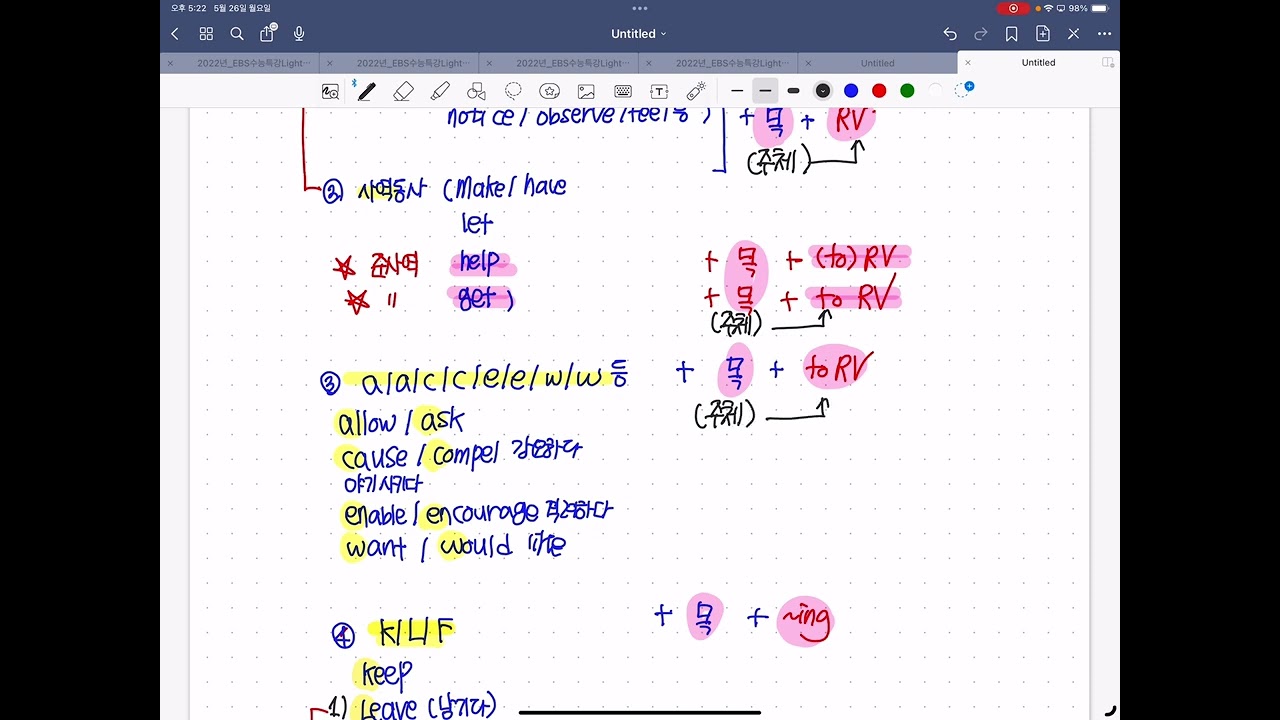 오후 5:22 5월 26일 월요일 98%
Untitled
2022년_EBS수능특강Light… 2022년_EBS수능특강Light… 2022년_EBS수능특강Light… 2022년_EBS수능특강Light… Untitled Untitled
notice / observe / feel 등 ) + 목 + RV
(주체)
② 사역동사 (make / have
let
☆ 준사역 help + 목 + (to) RV
☆ " get ) + 목 + to RV
(주체)
③ a/a/c/c/e/e/w/w 등 + 목 + to RV
(주체)
allow / ask
cause / compel 강요하다
야기시키다
enable / encourage 격려하다
want / would like
④ K/L/F + 목 + ~ing
keep
1) Leave (남기다)